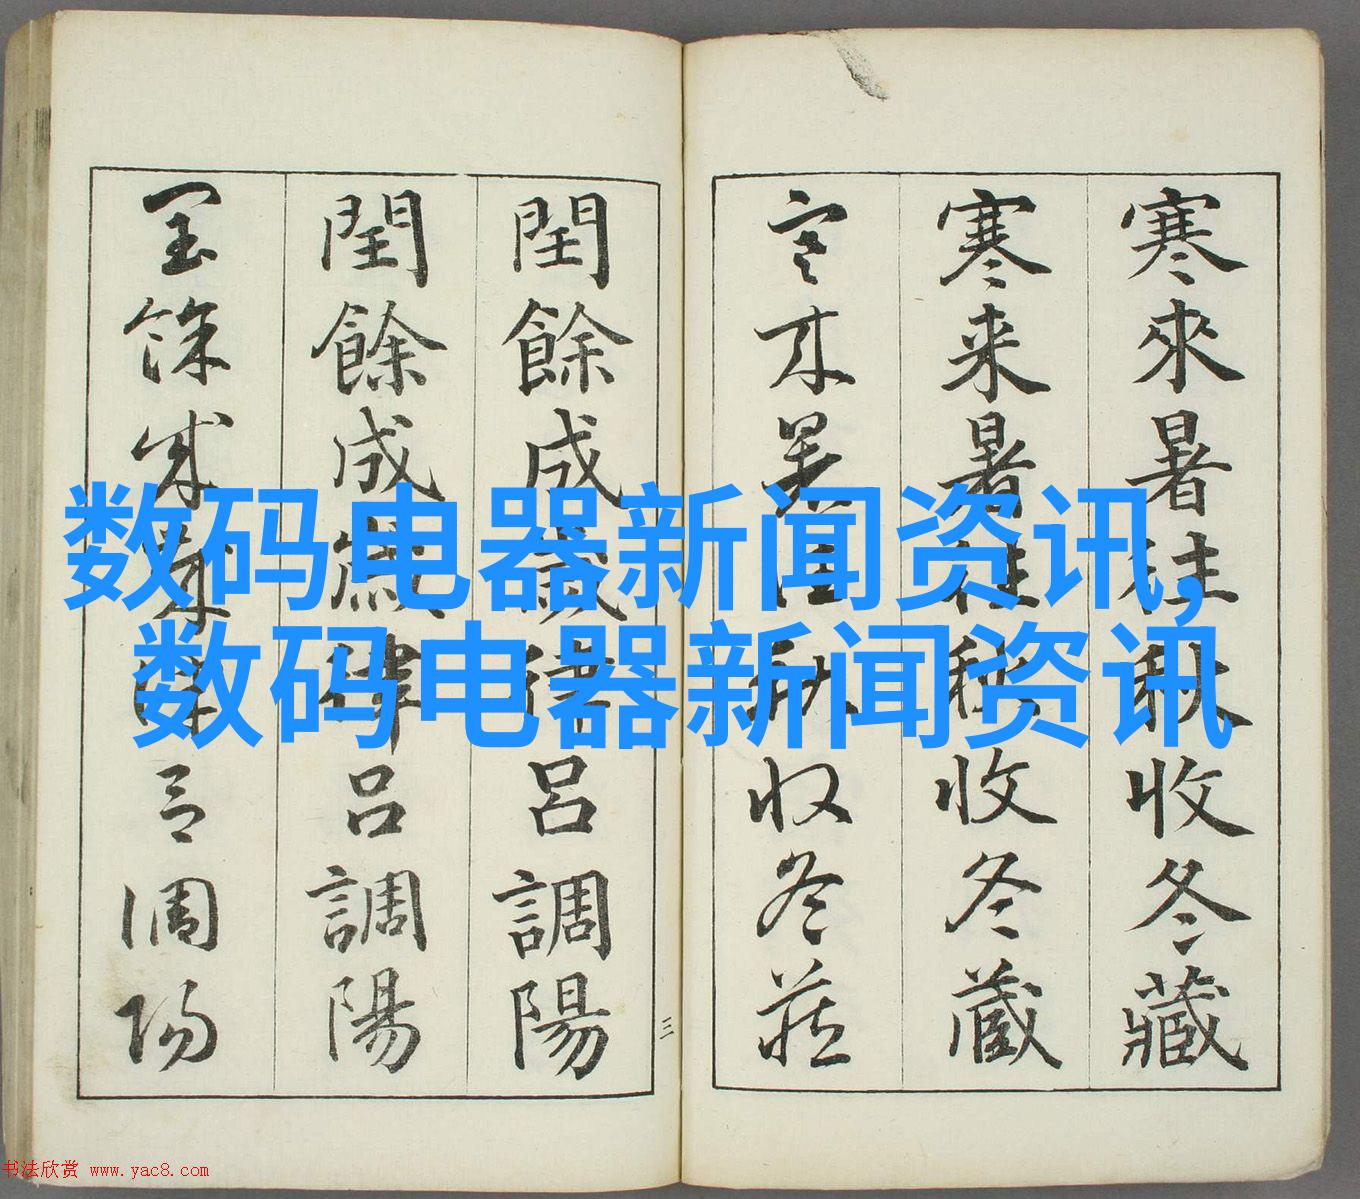 寒來暑往秋收冬藏
寒来暑往秋收冬蔵
寒来暑往秋收冬藏
三
閏餘成歲律呂調陽
閏餘成歲律呂調陽
閏餘成歲律呂調陽
数码电器新闻资讯,
数码电器新闻资讯
书法欣赏 www.yac8.com